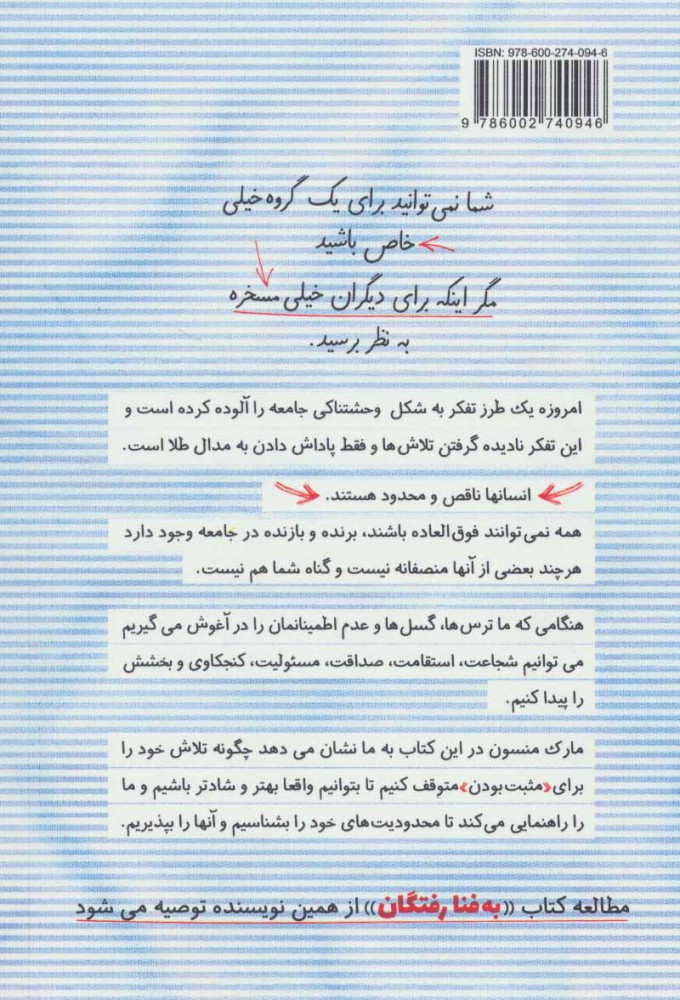 ISBN: 978-600-274-094-6
9 786002 740946
شما نمی‌توانید برای یک گروه خیلی
خاص باشید
مگر اینکه برای دیگران خیلی مسخره
به نظر برسید.
امروزه یک طرز تفکر به شکل وحشتناکی جامعه را آلوده کرده است و
این تفکر نادیده گرفتن تلاش‌ها و فقط پاداش دادن به مدال طلا است.
انسانها ناقص و محدود هستند.
همه نمی‌توانند فوق‌العاده باشند، برنده و بازنده در جامعه وجود دارد
هرچند بعضی از آنها منصفانه نیست و گناه شما هم نیست.
هنگامی که ما ترس‌ها، گسل‌ها و عدم اطمینانمان را در آغوش می گیریم
می توانیم شجاعت، استقامت، صداقت، مسئولیت، کنجکاوی و بخشش
را پیدا کنیم.
مارک منسون در این کتاب به ما نشان می دهد چگونه تلاش خود را
برای «مثبت‌بودن» متوقف کنیم تا بتوانیم واقعا بهتر و شادتر باشیم و ما
را راهنمایی می‌کند تا محدودیت‌های خود را بشناسیم و آنها را بپذیریم.
مطالعه کتاب ((به فنا رفتگان)) از همین نویسنده توصیه می شود